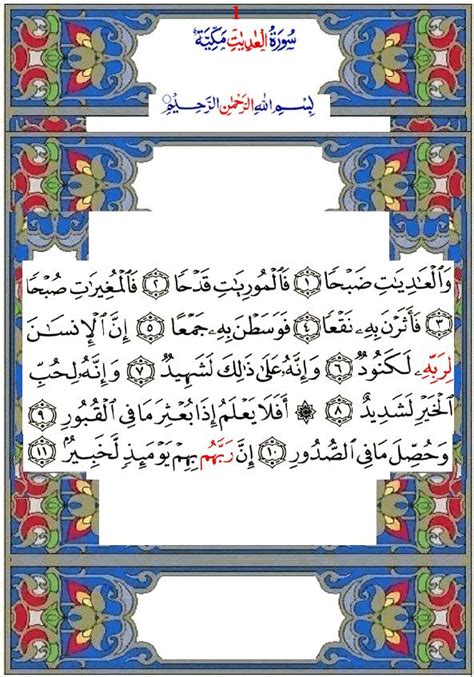 1
سُورَةُ الْعٰدِيٰتِ مَكِيَّة
بِسْمِ اللهِ الرَّحْمٰنِ الرَّحِيْمِ
وَالْعَادِيَاتِ ضَبْحًا ۝١ فَالْمُورِيَاتِ قَدْحًا ۝٢ فَالْمُغِيرَاتِ صُبْحًا
۝٣ فَأَثَرْنَ بِهِ نَقْعًا ۝٤ فَوَسَطْنَ بِهِ جَمْعًا ۝٥ إِنَّ الْإِنْسَانَ
لِرَبِّهِ لَكَنُودٌ ۝٦ وَإِنَّهُ عَلَى ذَالِكَ لَشَهِيدٌ ۝٧ وَإِنَّهُ لِحُبِّ
الْخَيْرِ لَشَدِيدٌ ۝٨ ۞ أَفَلَا يَعْلَمُ إِذَا بُعْثِرَ مَا فِي الْقُبُورِ ۝٩
وَحُصِّلَ مَا فِي الصُّدُورِ ۝١٠ إِنَّ رَبَّهُم بِهِمْ يَوْمَئِذٍ لَّخَبِيرٌ ۝١١